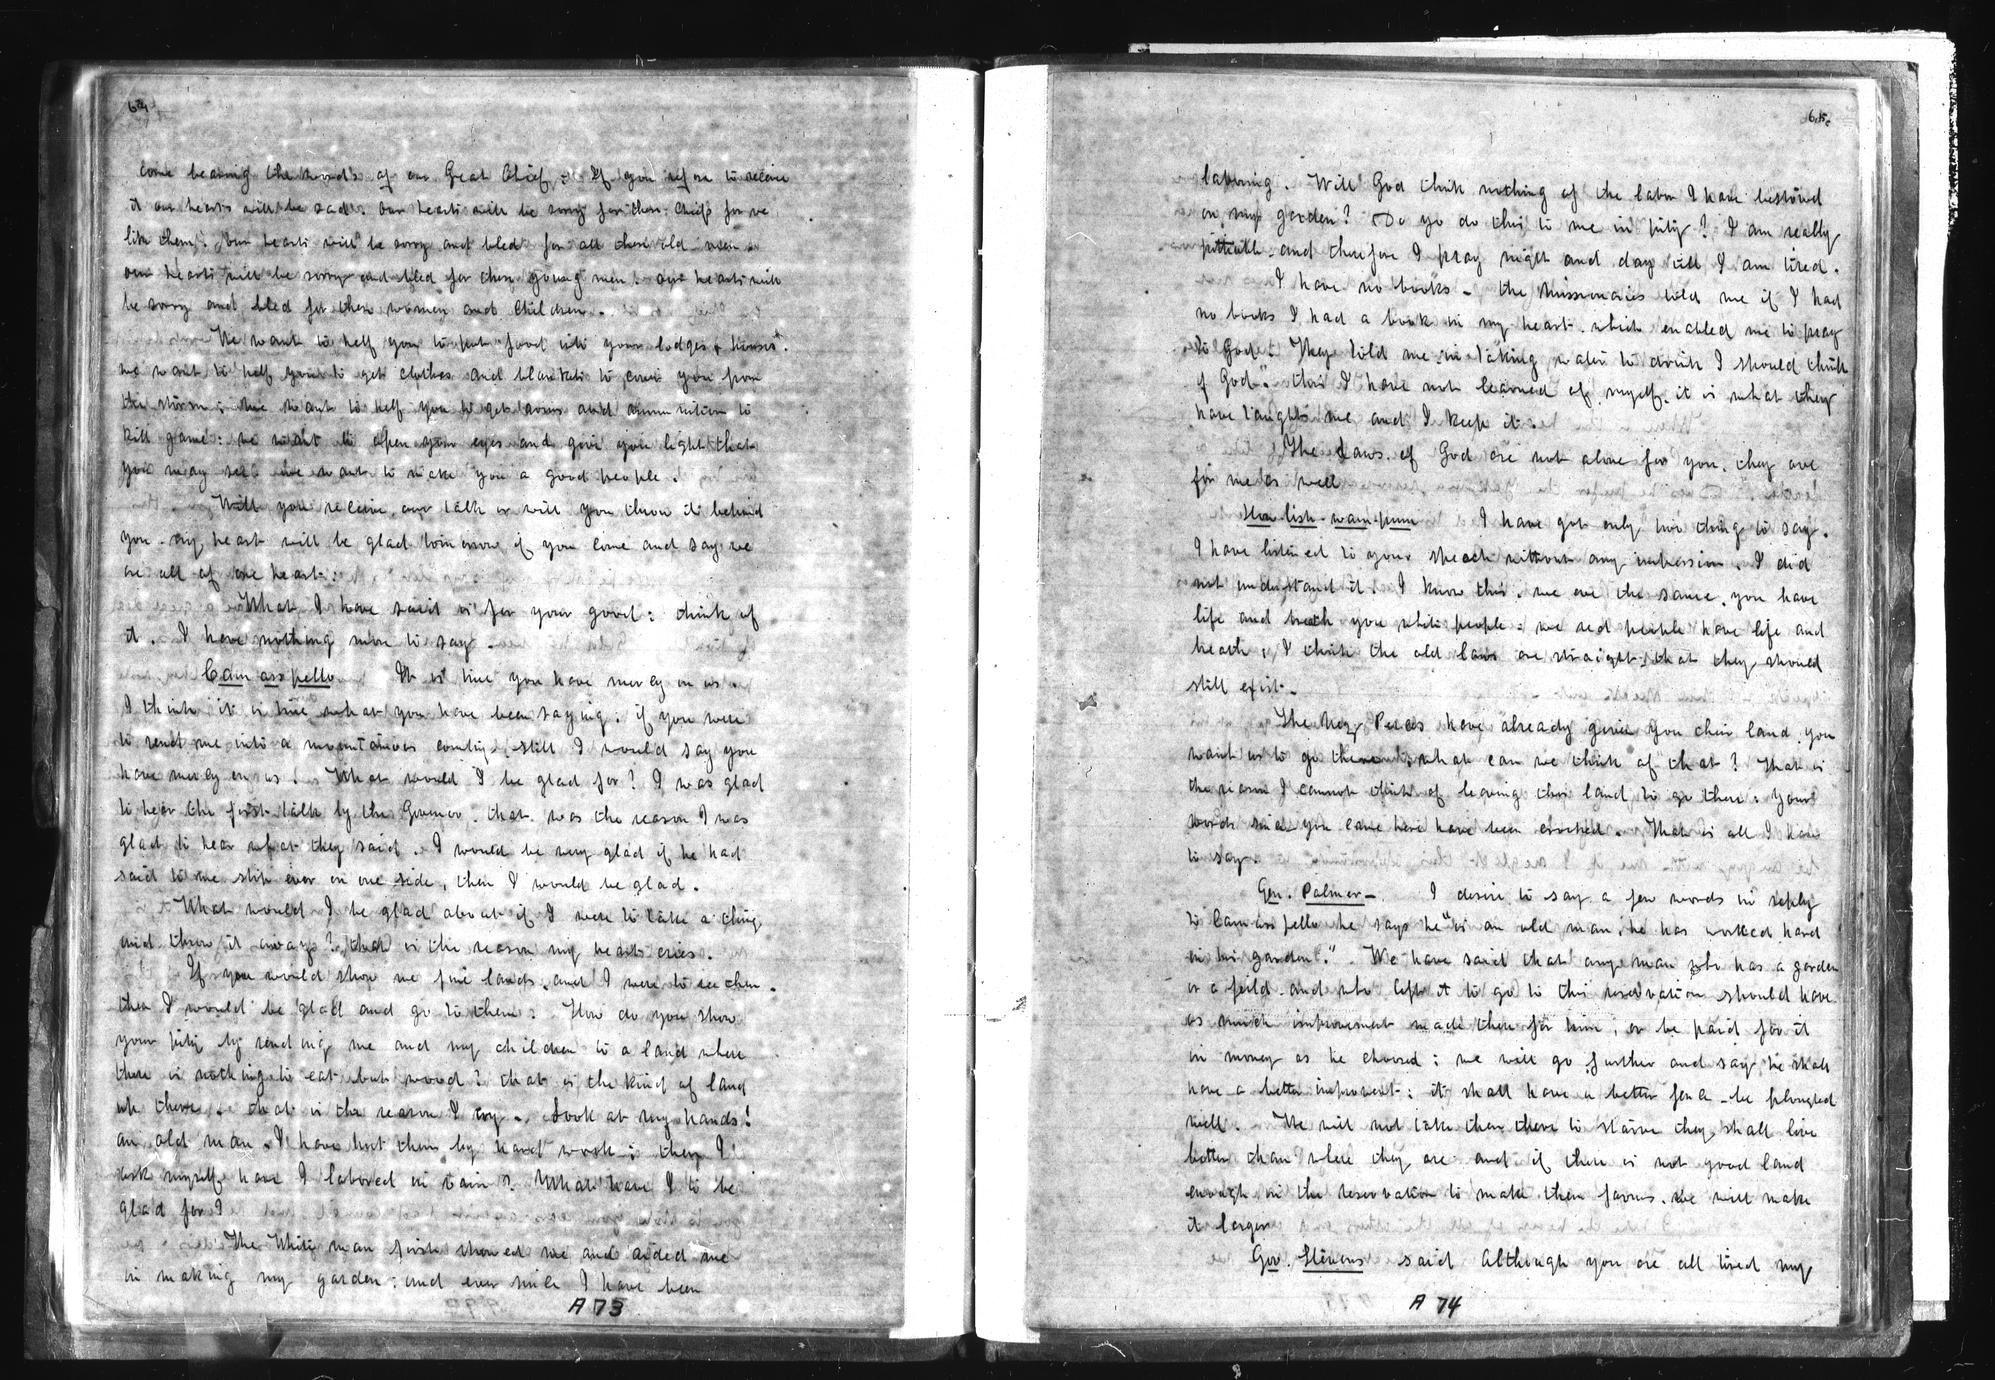 64
come bearing the words of our Great Chief: If you refuse to receive
it our hearts will be sad. Our hearts will be sorry for these Chiefs for we
like them: our hearts will be sorry and bled for all these old men:
our hearts will be sorry and bled for these young men: our hearts will
be sorry and bled for these women and Children.
We want to help you to put food into your lodges & houses.
we want to help you to get clothes and blankets to cover you from
the storm; we want to help you to get arms and ammunition to
kill game: we want to open your eyes and give you light that
you may see. we want to make you a good people.
Will you receive our talk or will you throw it behind
you. my heart will be glad tomorrow if you come and say we
are all of one heart:
What I have said is for your good: think of
it. I have nothing more to say.
Cam as pello It is time you have mercy on us.
I think it is true what you have been saying: if you were
to send me into a mountainous country still I would say you
have mercy on us! What would I be glad for? I was glad
to hear the first talk by the Govenor. that was the reason I was
glad to hear what they said. I would be very glad if he had
said to me stop over on one side, then I would be glad.
What would I be glad about if I were to take a thing
and throw it away? that is the reason my heart cries.
If you would show me fine lands, and I were to see them.
then I would be glad and go to them: How do you show
your pity by sending me and my children to a land where
there is nothing to eat but wood? that is the kind of land
up there. that is the reason I cry. Look at my hands!
an old man. I have hurt them by hard work; then I
ask myself have I labored in vain? What have I to be
glad for?
The White man first showed me and aided me
in making my garden: and ever since I have been
A 73
65
laboring. Will God think nothing of the labor I have bestowed
on my garden? Do yo do this to me in pity? I am really
pitiable and therefore I pray night and day till I am tired.
I have no books – the Missionaries told me if I had
no books I had a book in my heart. which enabled me to pray
to God: They told me in taking water to drink I should think
of God. this I have not learned of myself. it is what they
have taught me and I keep it.
The Laws of God are not alone for you. they are
for me as well
How lish wam pum I have got only two things to say.
I have listened to your speech without any impression. I did
not understand it. I know this. we are the same. you have
life and breath you white people: we red people have life and
breath; I think the old laws are straight: that they should
still exist.
The Nez Perces have already given you their land. you
want us to go there: what can we think of that? That is
the reason I cannot think of leaving this land to go there. Your
words since you came here have been crooked. That is all I have
to say.
Gen. Palmer – I desire to say a few words in reply
to Cam as pello he says he "is an old man; he has worked hard
in his garden." We have said that any man who has a garden
or a feild and who left it to go to this reservation should have
as much improvement made there for him; or be paid for it
in money as he choosed: we will go further and say he shall
have a better improvent: it shall have a better fence – be ploughed
well. We will not take them there to starve they shall live
better than where they are and if there is not good land
enough in the reservation to make them farms. we will make
it larger
Gov. Stevens said Although you are all tired my
A 74